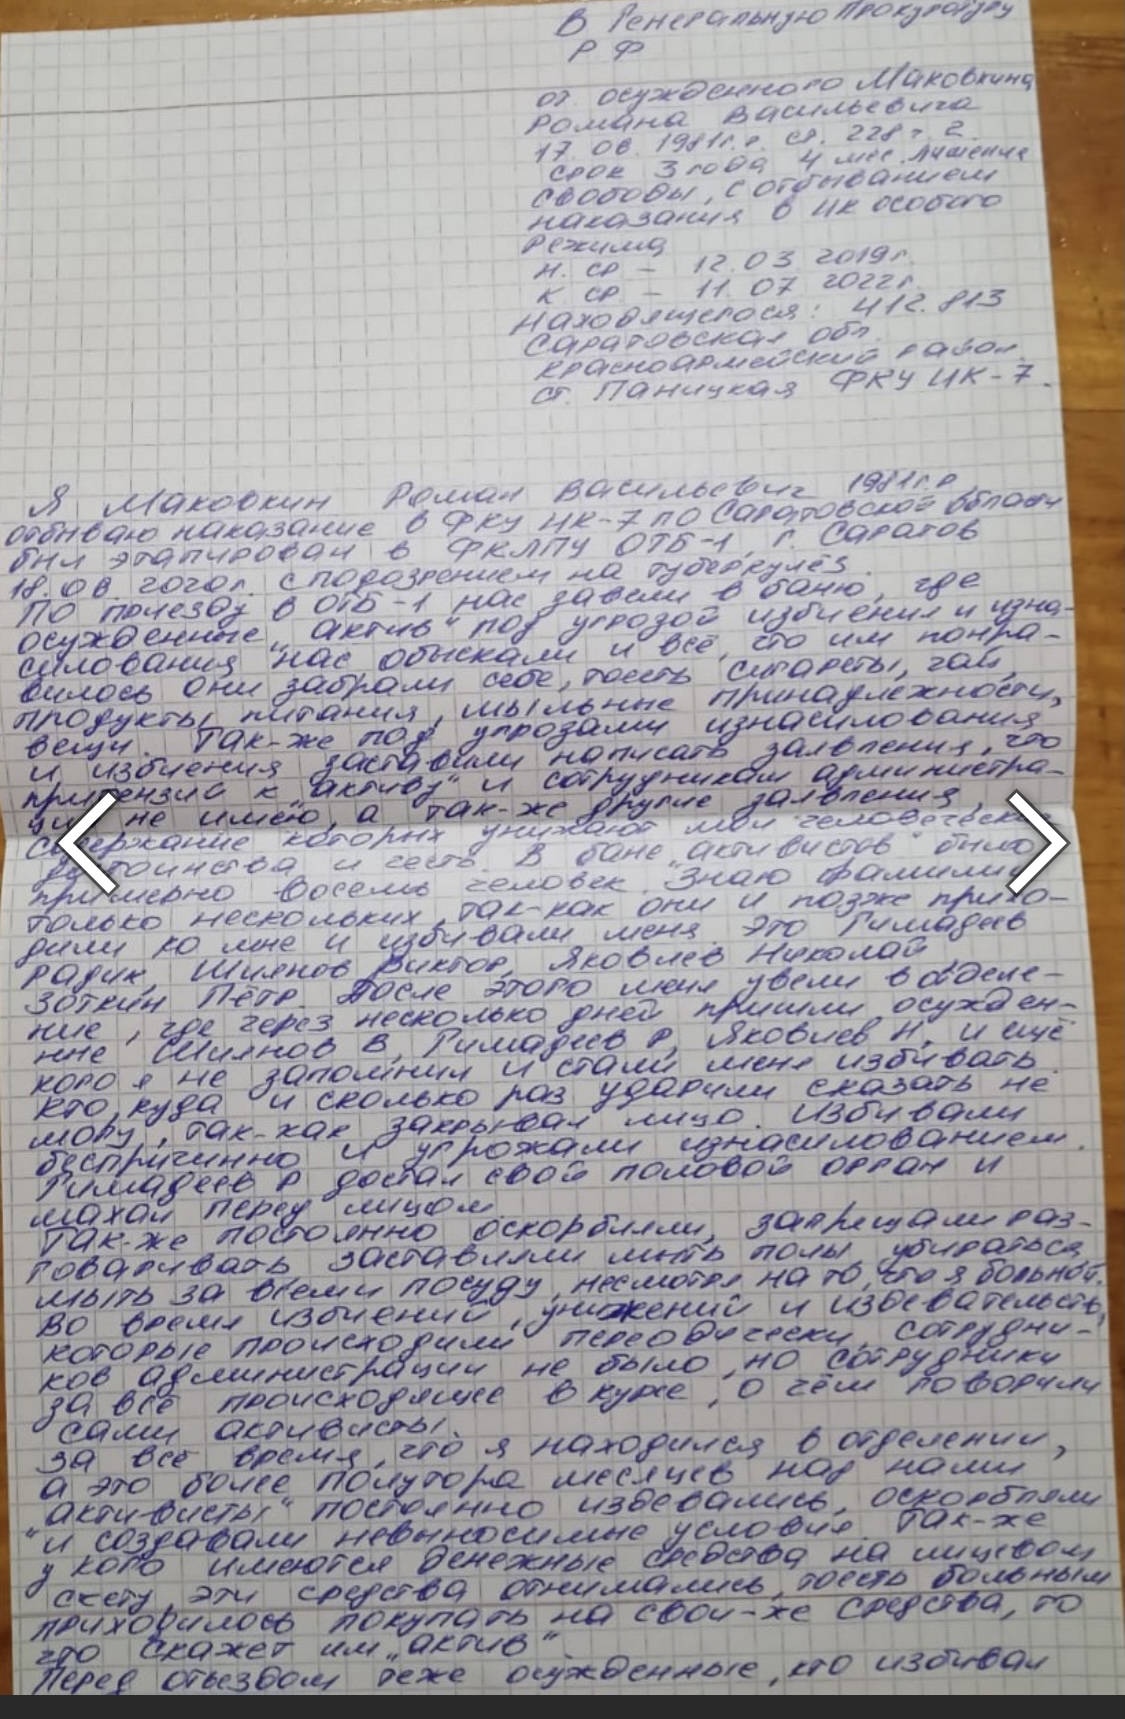 В Генеральную Прокуратуру
РФ
от осужденного Маковкина
Романа Васильевича
17.06.1981г.р. ст. 228 ч. 2.
срок 3 года 4 мес лишение
свободы, с отбыванием
наказания в ИК особого
режима
н. ср - 12.03 2019г.
к ср - 11.07 2022г.
Находящегося: 412.813
Саратовская обл.
Красноармейский район
ст. Паницкая ФКУ ИК-7.
Я Маковкин Роман Васильевич 1981г.р
отбываю наказание в ФКУ ИК-7 по Саратовской области
был этапирован в ФКЛПУ ОТБ-1, г. Саратов
18.06.2020г. с подозрением на туберкулёз.
По приезду в ОТБ-1 нас завели в баню, где
осужденные „актив" под угрозой избиения и изна-
силования нас обыскали и всё, что им понра-
вилось они забрали себе, тоесть сигареты, чай,
продукты питания, мыльные принадлежности,
вещи. Так-же под угрозами изнасилования
и избиения заставили написать заявления, что
притензий к „активу" и сотрудникам администра-
ции не имею, а так-же другие заявления,
содержание которых унижают мои
достоинства и честь. В бане „активистов" было
примерно восемь человек. Знаю фамилии
только нескольких, так-как они и позже прихо-
дили ко мне и избивали меня. Это Гимадеев
Радик, Шиянов Виктор, Яковлев Николай,
Зоткин Пётр. После этого меня увели в
ние, где через несколько дней пришли осужден-
ные Шиянов В, Гимадеев Р, Яковлев Н, и ещё
кого я не запомнил и стали меня избивать.
Кто, куда и сколько раз ударили сказать не
могу, так-как закрывал лицо. Избивали
беспричинно и угрожали изнасилованием.
Гимадеев Р достал свой половой орган и
махал перед лицом.
Так-же постоянно оскорбляли, запрещали раз-
говаривать заставляли мыть полы, убираться
мыть за всеми посуду, несмотря на то, что я больной.
Во время избиений, унижений и избевательств,
которые происходили переодически, сотрудни-
ков администрации не было, но сотрудники
за всё происходящее в курсе, о чём говорили
сами активисты.
За всё время, что я находился в отделении,
а это более полутора месяцев над нами
„активисты" постоянно избевались, оскорбляли
и создавали невыносимые условия. Так-же
у кого имеются денежные средства на лицевом
счету, эти средства отнимались, тоесть больным
приходилось покупать на свои-же средства, то
что скажет им „актив".
Перед отъездом теже осужденные, кто избивал